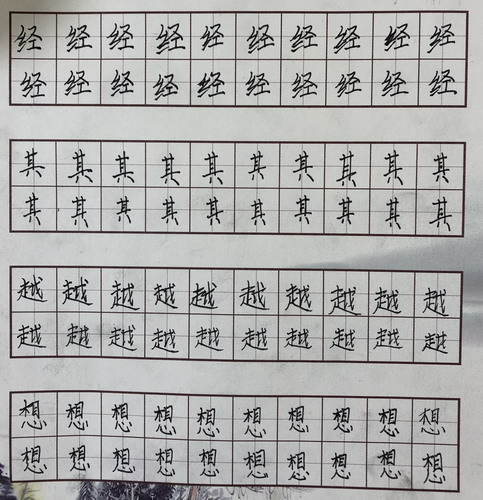 经经经经经经经经经经
经经经经经经经经经经
其其其其其其其其其其
其其其其其其其其其其
越越越越越越越越越越
越越越越越越越越越越
想想想想想想想想想想
想想想想想想想想想想